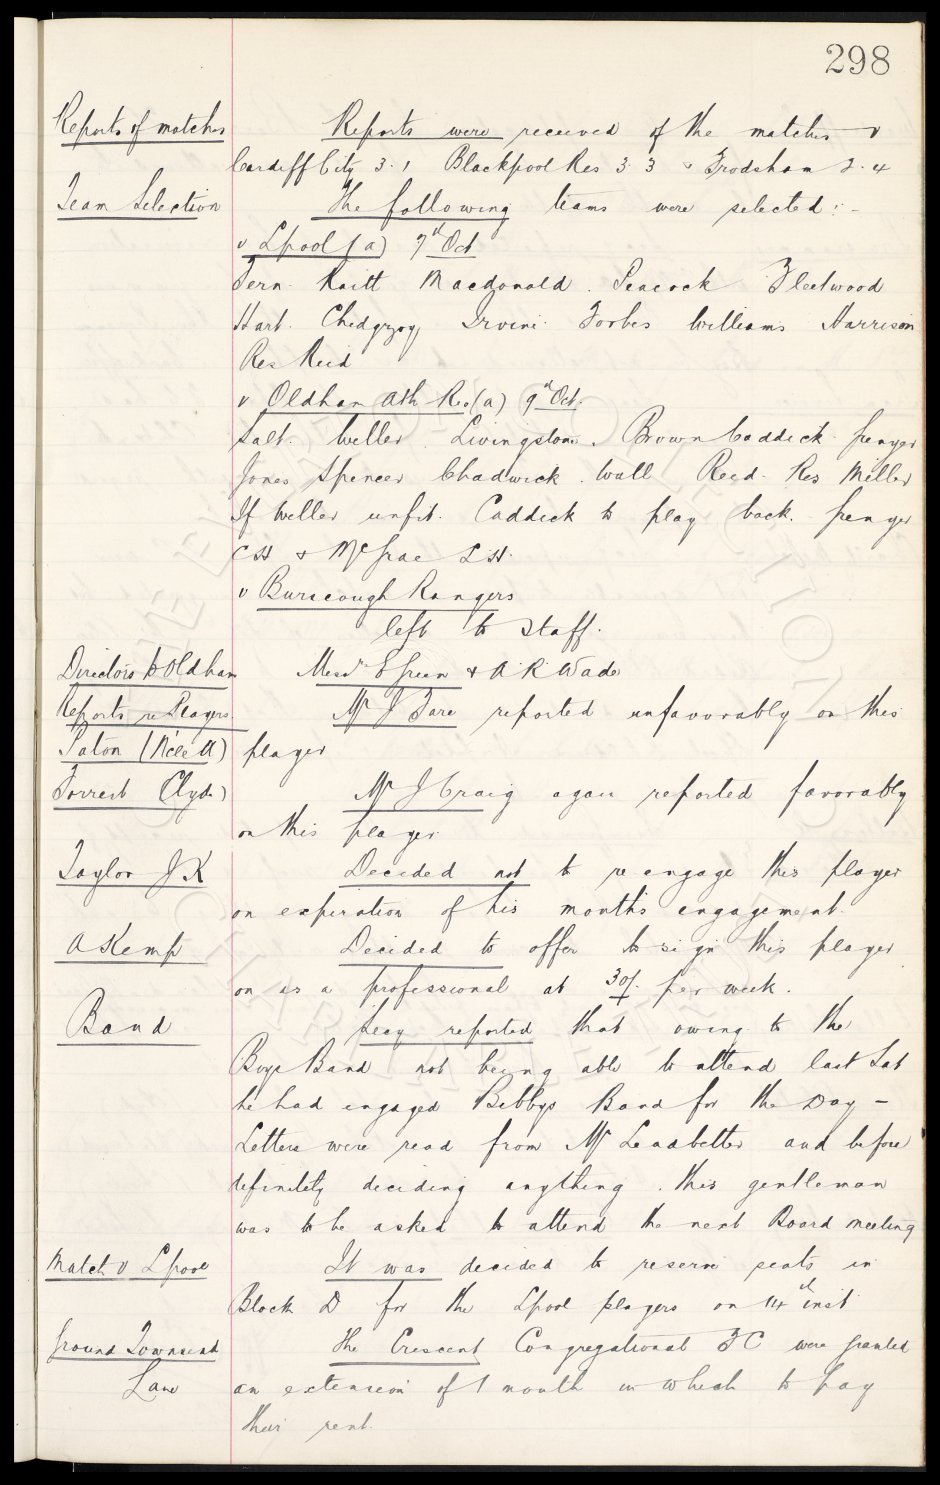 298
Reports of matches
Reports were received of the matches v
Cardiff City 3.1 Blackpool Res 3.3 & Frodsham 2.4
Team Selection
The following teams were selected:-
v Lpool (a) 7th Oct
Fern. Raitt Macdonald. Peacock Fleetwood
Hart. Chedgzoy Irvine Forbes Williams Harrison
Res Reid
v Oldham Ath Res (a) 9th Oct.
Salt. Weller. Livingstone. Brown Caddick. Grenyer
Jones Spencer Chadwick. Wall Reed. Res Miller
If Weller unfit. Caddick to play back. Grenyer
CH & McGrae LH.
v Burscough Rangers
left to staff.
Directors to Oldham
Messrs E Green & A.R. Wade
Reports re Players
Mr J Fare reported unfavorably on this
Paton (Nele U) player
Forrest (Clyde)
Mr J Craig again reported favorably
on this player
Taylor J.K
Decided not to re engage this player
on expiration of his months engagement.
A Kemp
Decided to offer to sign this player
on as a professional at 30/- per week.
Band
Secy reported that owing to the
Boys Band not being able to attend last Sat
he had engaged Bibbys Band for the Day -
Letters were read from Mr Leadbetter and before
definitely deciding anything. this gentleman
was to be asked to attend the next Board meeting
Match v Lpool
It was decided to reserve seats in
Block D for the Lpool players on 14th inst
Ground Townsend
Lane
The Crescent Congregational FC were granted
an extension of 1 month in which to pay
their rent.